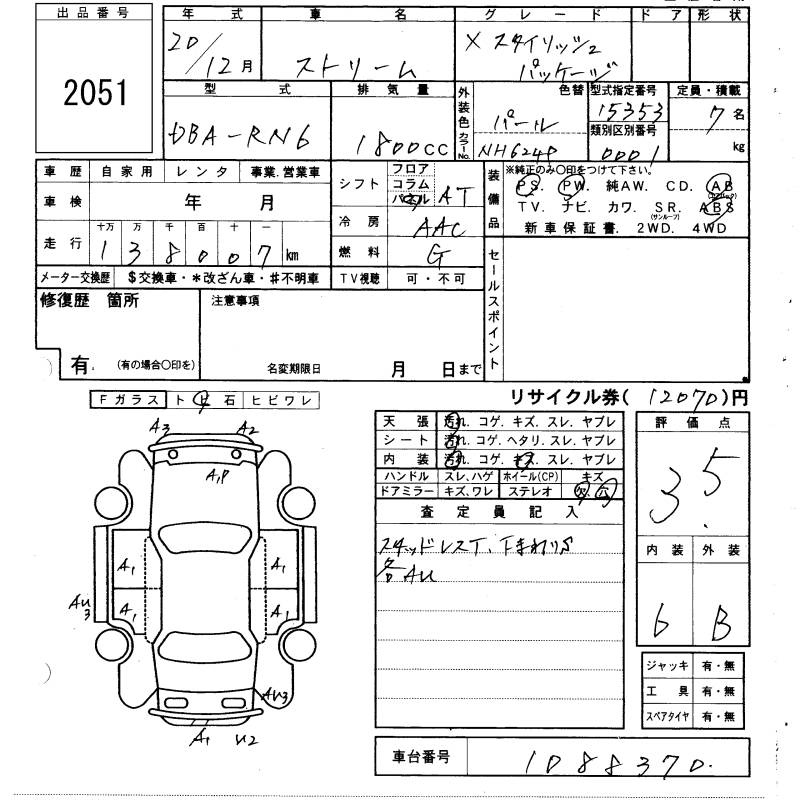 出品番号
2051
年式 車名 グレード ドア 形状
20/12月 ストリーム X スタイリッシュ
パッケージ
型式 排気量 外装色 カラーNo. 色替 型式指定番号 定員・積載
DBA-RN6 1800CC パール 15353 7名
類別区別番号
NH624P 0001 kg
車歴 自家用 レンタ 事業.営業車
車検 年 月
走行 十万 万 千 百 十 一
1 3 8 0 0 7 km
メーター交換歴 $交換車・*改ざん車・#不明車
シフト フロア コラム パネル AT
冷房 AAC
燃料 G
TV視聴 可・不可
装備品 ※純正のみ〇印をつけて下さい。
PS. PW. 純AW. CD. AB
(エアバック)
TV. ナビ. カワ. SR. ABS
(サンルーフ)
新車保証書. 2WD. 4WD
セールスポイント
修復歴 箇所
有. (有の場合〇印を)
注意事項
名変期限日 月 日まで
リサイクル券( 12070 )円
Fガラス トビ石 ヒビワレ
A3 A2
A1P
A1 A1
A1 A1
AU3
AU3
A1 U2
天張 汚れ. コゲ. キズ. スレ. ヤブレ
シート 汚れ. コゲ. ヘタリ. スレ. ヤブレ
内装 汚れ. コゲ. キズ. スレ. ヤブレ
ハンドル スレ.ハゲ ホイール(CP) キズ
ドアミラー キズ.ワレ ステレオ 欠. 穴
査定員記入
スタッドレスT. 下まわりS
各AU
評価点
3.5
内装 外装
6 B
ジャッキ 有・無
工具 有・無
スペアタイヤ 有・無
車台番号 1088370.